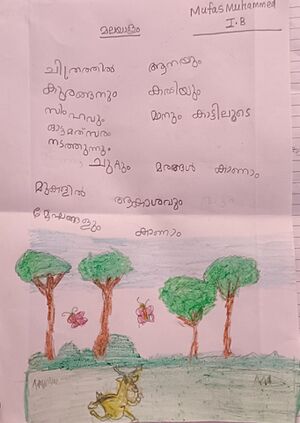 Mufas Muhammed
I.B
മലയാളം
ചിത്രത്തിൽ ആനയും
കുരങ്ങനും കരടിയും
സിംഹവും മാനും കാട്ടിലൂടെ
ഓട്ടമത്സരം
നടത്തുന്നു.
ചുറ്റും മരങ്ങൾ കാണാം
മുകളിൽ ആകാശവും
മേഘങ്ങളും കാണാം